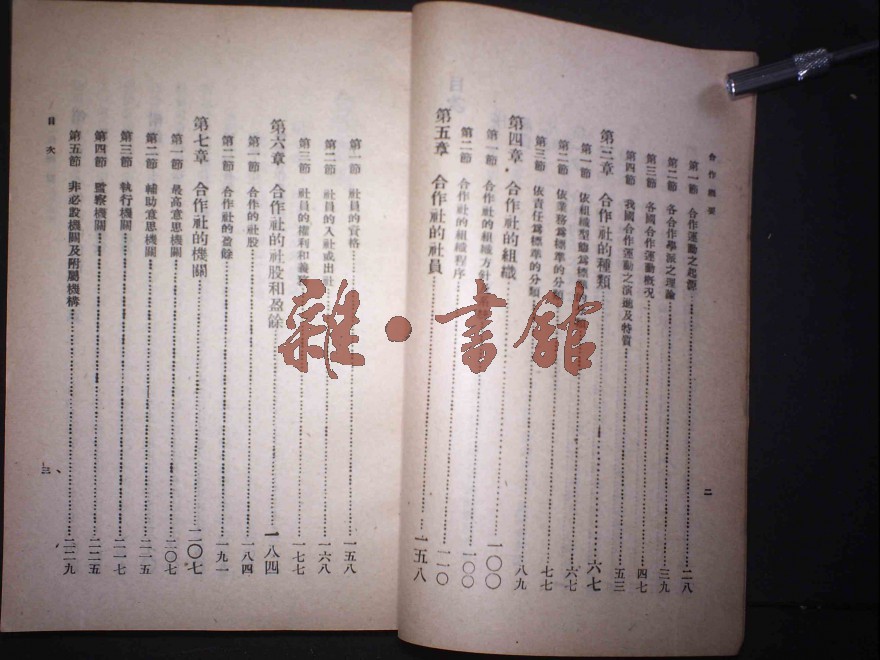 合作概要
第一節 合作運動之起源 二八
第二節 各合作學派之理論 三九
第三節 各國合作運動概況 四七
第四節 我國合作運動之演進及特質 五三
第三章 合作社的種類 六七
第一節 依組織型態爲標準的 六七
第二節 依業務爲標準的分類 七七
第三節 依責任爲標準的分類 八九
第四章 合作社的組織 一〇〇
第一節 合作社的組織方針 一〇〇
第二節 合作社的組織程序 一一〇
第五章 合作社的社員 一五八
二
第一節 社員的資格 一五八
第二節 社員的入社或出社 一六八
第三節 社員的權利和義務 一七七
第六章 合作社的社股和盈餘 一八四
第一節 合作的社股 一八四
第二節 合作社的盈餘 一九一
第七章 合作社的機關 二〇七
第一節 最高意思機關 二〇七
第二節 輔助意思機關 二一五
第三節 執行機關 二一七
第四節 監察機關 二二五
第五節 非必設機關及附屬機構 二二九
目次
三
雜·書館